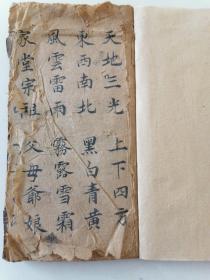 天地三光 上下四方
東西南北 黑白青黄
風雲雷雨 霧露雪霜
家堂宗祖 父母爺娘